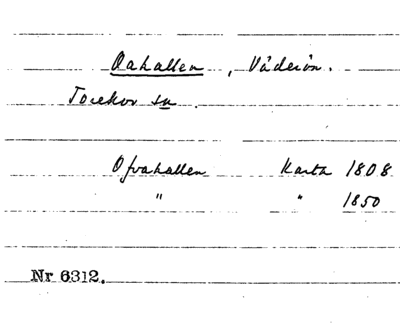 Oahallen, Väderön.
Torekov sn.
Ofvahallen Karta 1808
" " 1850
Nr 6312.